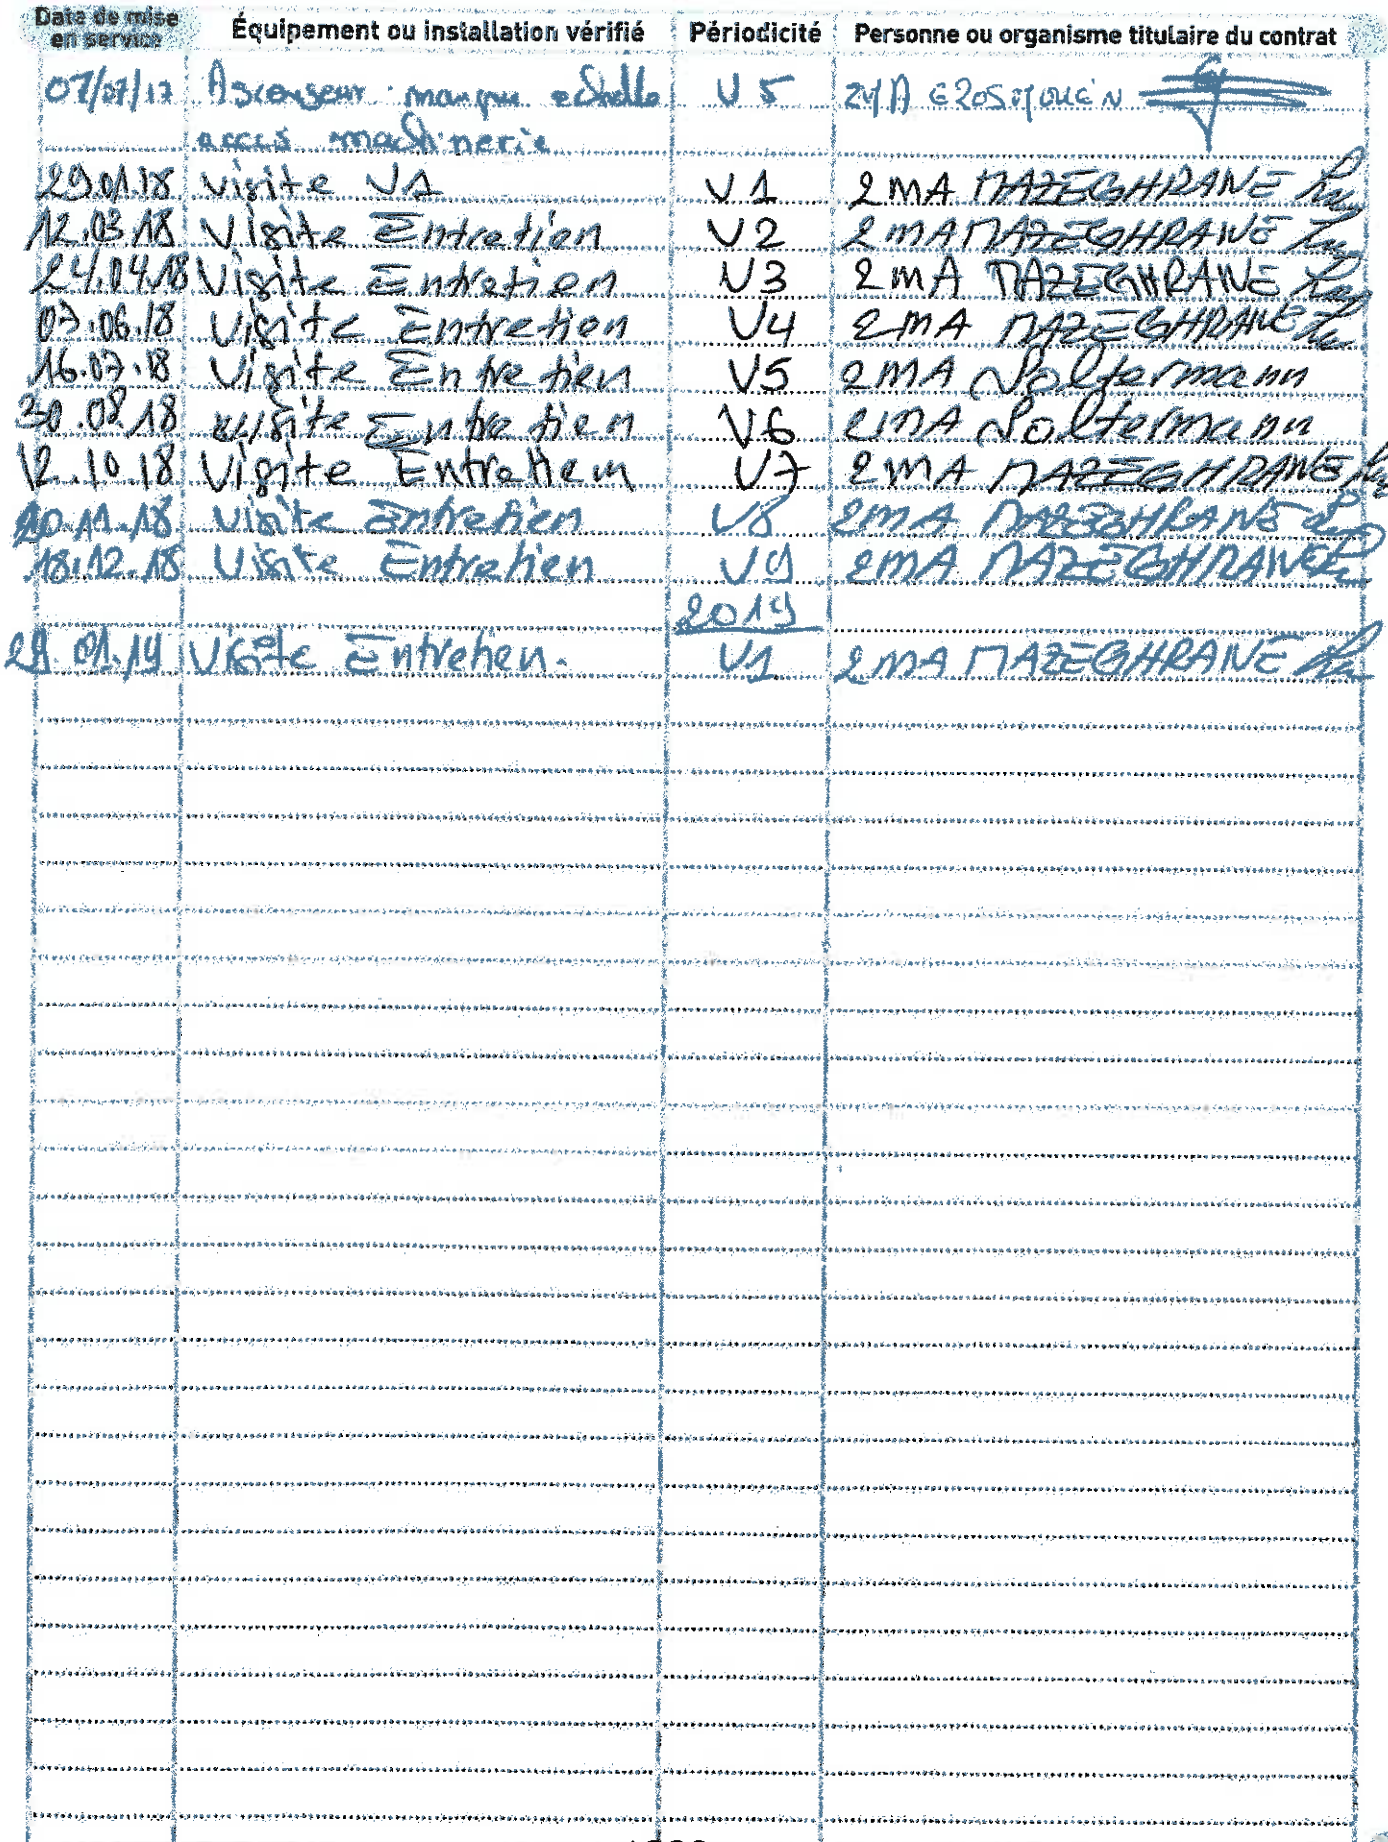 Date de mise en service Équipement ou installation vérifié Périodicité Personne ou organisme titulaire du contrat
07/07/17 Ascenseur manque echelle V5 2MA
acces machinerie
29.01.18 Visite V1 V1 2MA MAZEGHRANE
12.03.18 Visite Entretien V2 2MA MAZEGHRANE
24.04.18 Visite Entretien V3 2MA MAZEGHRANE
07.06.18 Visite Entretien V4 2MA MAZEGHRANE
16.07.18 Visite Entretien V5 2MA Soltermann
30.08.18 Visite Entretien V6 2MA Soltermann
12.10.18 Visite Entretien V7 2MA MAZEGHRANE
20.11.18 Visite Entretien V8 2MA MAZEGHRANE
18.12.18 Visite Entretien V9 2MA MAZEGHRANE
2019
29.01.19 Visite Entretien. V1 2MA MAZEGHRANE